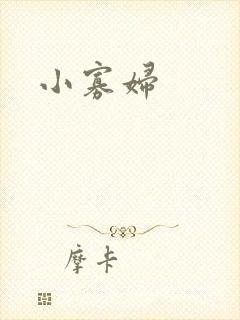 小寡婦
摩卡